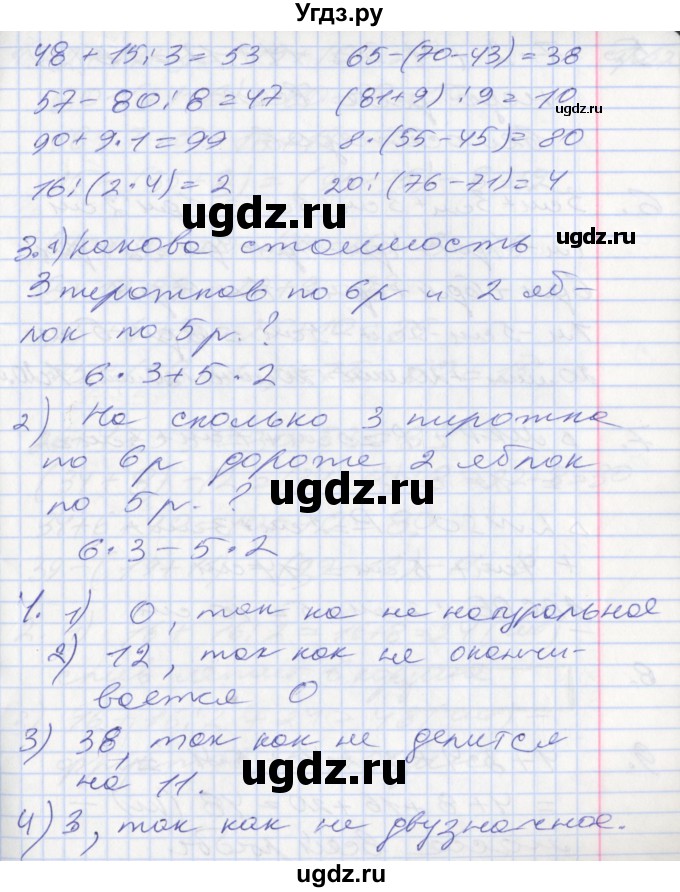 Угдз.ру
48 + 15 : 3 = 53 65-(70-43) = 38
57 - 80 : 8 = 47 (81+9) : 9 = 10
90 + 9 · 1 = 99 8 · (55 - 45) = 80
16 : (2 · 4) = 2 20 : (76 - 71) = 4
ugdz.ru
ugdz.ru
ugdz.ru
3. 1) Какова стоимость
3 пирожков по 6р и 2 яб-
лок по 5р. ?
6 · 3 + 5 · 2
ugdz.ru
2) На сколько 3 пирожка
по 6р дороже 2 яблок
по 5р. ?
6 · 3 - 5 · 2
ugdz.ru
ugdz.ru
4. 1) 0, так ка не натуральное
2) 12, так как не оканчи-
вается 0
ugdz.ru
3) 38, так как не делится
на 11.
ugdz.ru
ugdz.ru
4) 3, так как не двузначное.
ugdz.ru